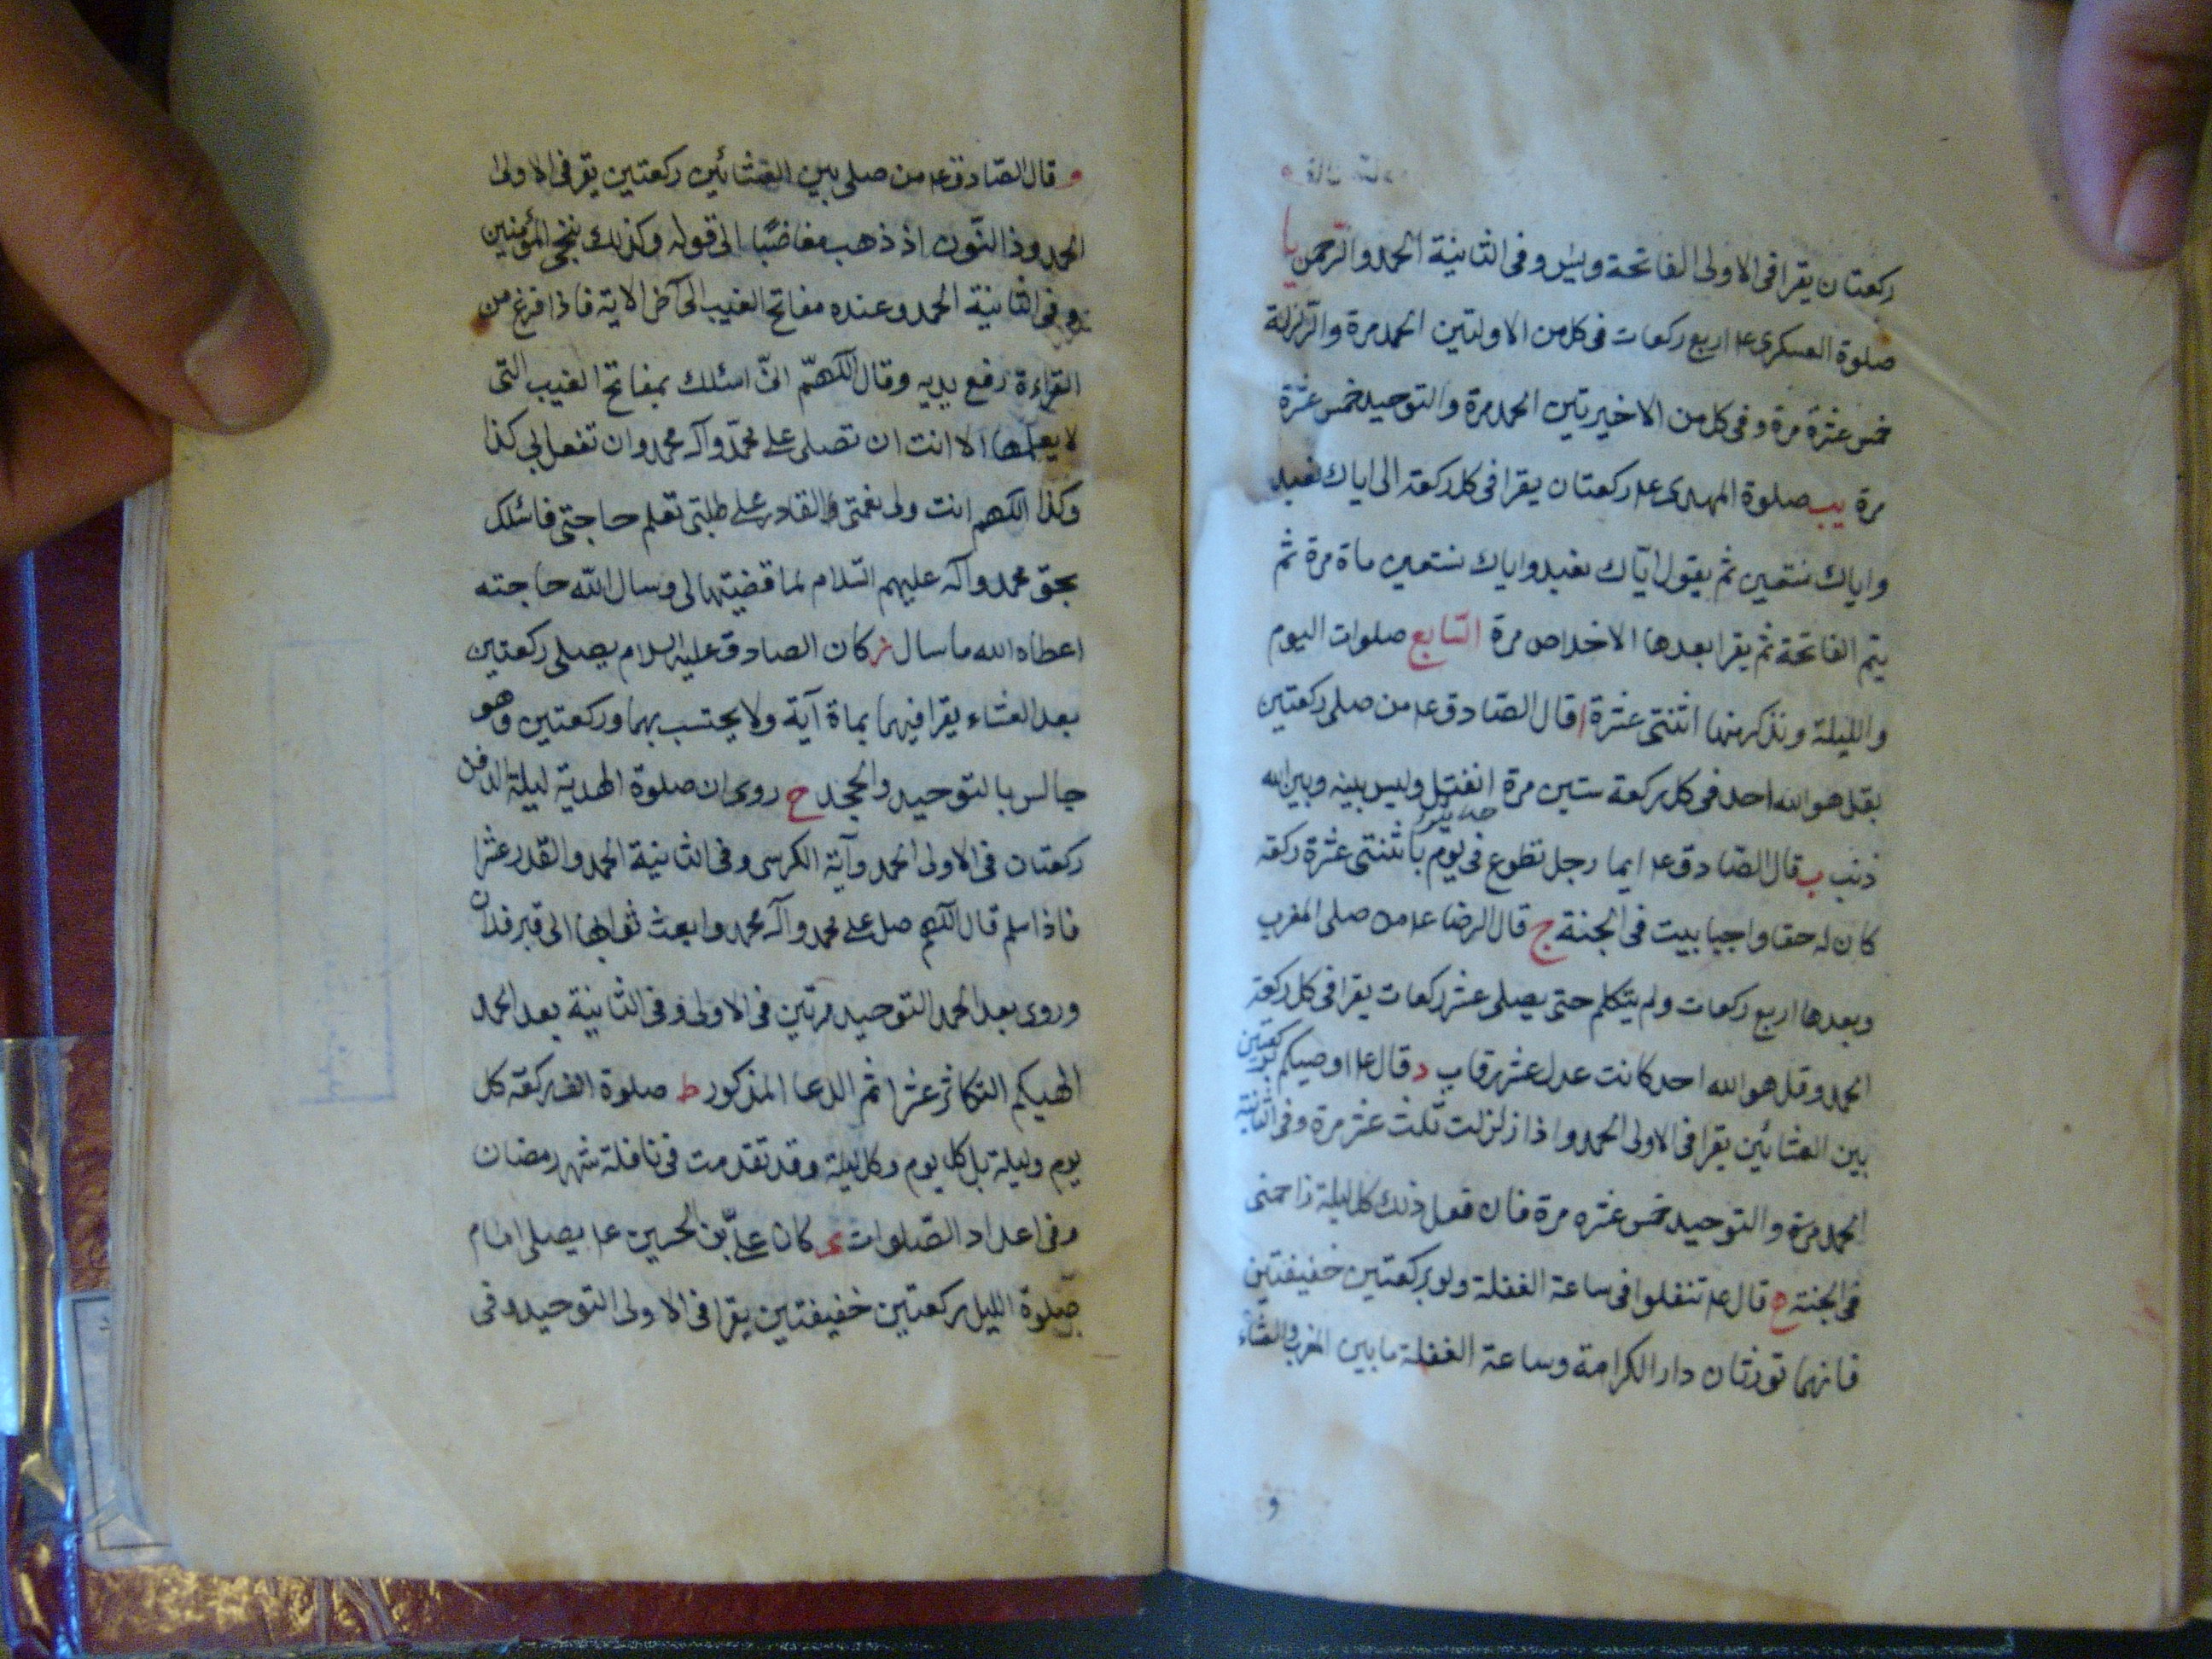 ركعتان يقرا فى الاولى الفاتحة ويس وفى الثانية الحمد والرّحمن يا
صلوة العسكرى ع‍ اربع ركعات فى كل من الاولتين الحمد مرة والزلزلة
خمس عشرة مرة وفى كل من الاخيرتين الحمد مرة والتوحيد خمس عشرة
مرة يب صلوة المهدى ع‍ ركعتان يقرا فى كل ركعة الى اياك نعبد
واياك نستعين ثم يقول ايّاك نعبد واياك نستعين ماة مرة ثم
يتم الفاتحة ثم يقرا بعدها الاخلاص مرة السّابع صلوات اليوم
والليلة ونذكر منها اثنتى عشرة ا قال الصّادق ع‍ من صلى ركعتين
بقل هو الله احد فى كل ركعة ستين مرة انفتل وليس بينه وبين الله
ذنب ب قال الصّادق ع‍ ايما رجل تطوع فى يوم باثنتى عشرة ركعة
كان له حقا واجبا بيت فى الجنة ج قال الرضا ع‍ من صلى المغرب
وبعدها اربع ركعات ولم يتكلم حتى يصلى عشر ركعات يقرا فى كل ركعة
الحمد وقل هو الله احد كانت عدل عشر رقاب د قال ع‍ اوصيكم بركعتين
بين العشائين يقرا فى الاولى الحمد واذا زلزلت ثلث عشر مرة وفى الثانية
الحمد مرة والتوحيد خمس عشره مرة فان فعل ذلك كل ليلة زاحمنى
فى الجنة ه قال ع‍ تنفلوا فى ساعة الغفلة ولو بركعتين خفيفتين
فانهما تورثان دار الكرامة وساعة الغفلة ما بين المغرب والعشاء
و
و قال الصّادق ع‍ من صلى بين العشائين ركعتين يقرا فى الاولى
الحمد وذا النّون اذ ذهب مغاضبًا الى قوله وكذلك ننجى المؤمنين
وفى الثانية الحمد وعنده مفاتح الغيب الى آخر الاية فاذا فرغ من
القراءة رفع يديه وقال اللّهمّ انّى اسئلك بمفاتح الغيب التى
لا يعلمها الا انت ان تصلى على محمّد وآل محمد وان تفعل بى كذا
وكذا اللهم انت ولى نعمتى والقادر على طلبتى تعلم حاجتى فاسئلك
بحق محمد وآله عليهم السّلام لما قضيتها لى وسال الله حاجته
اعطاه الله ما سال ز كان الصادق عليه السلام يصلى ركعتين
بعد العشاء يقرا فيهما بماة آية ولا يحتسب بهما وركعتين وهو
جالس بالتوحيد والجحد ح روى ان صلوة الهدية ليلة الدفن
ركعتان فى الاولى الحمد وآية الكرسى وفى الثانية الحمد والقدر عشرا
فاذا سلم قال اللهم صل على محمد وآل محمد وابعث ثوابها الى قبر فلان
وروى بعد الحمد التوحيد مرتين فى الاولى وفى الثانية بعد الحمد
الهيكم التكاثر عشرا ثم الدعا المذكور ط صلوة الف ركعة كل
يوم وليلة بل كل يوم وكل ليلة وقد تقدمت فى نافلة شهر رمضان
وفى اعداد الصّلوات ى كان علىّ بن الحسين ع‍ يصلى امام
صّلوة الليل ركعتين خفيفتين يقرا فى الاولى التوحيد وفى